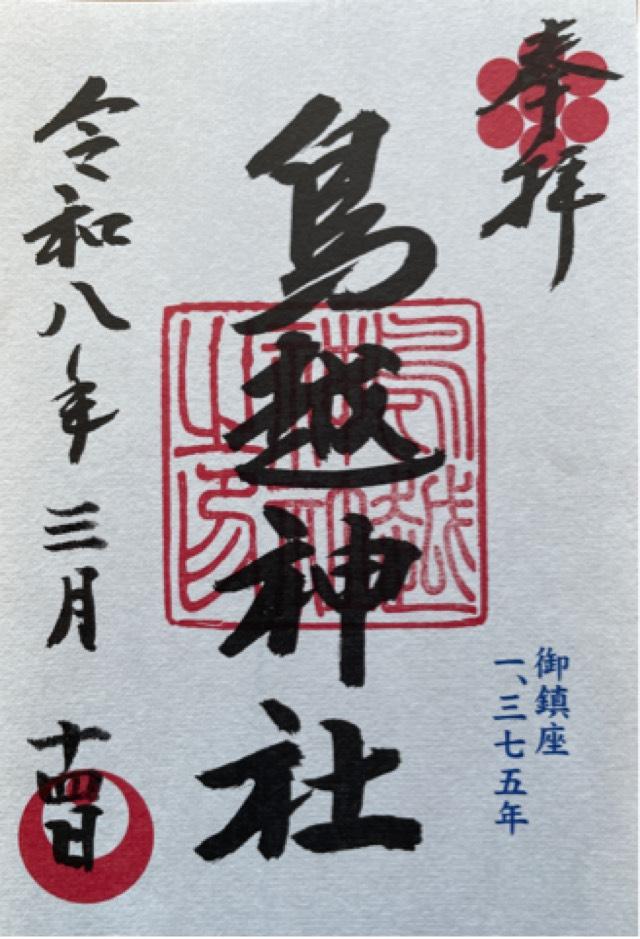 奉拝
鳥越神社
鳥越神社之印
御鎮座
一、三七五年
令和八年三月十四日